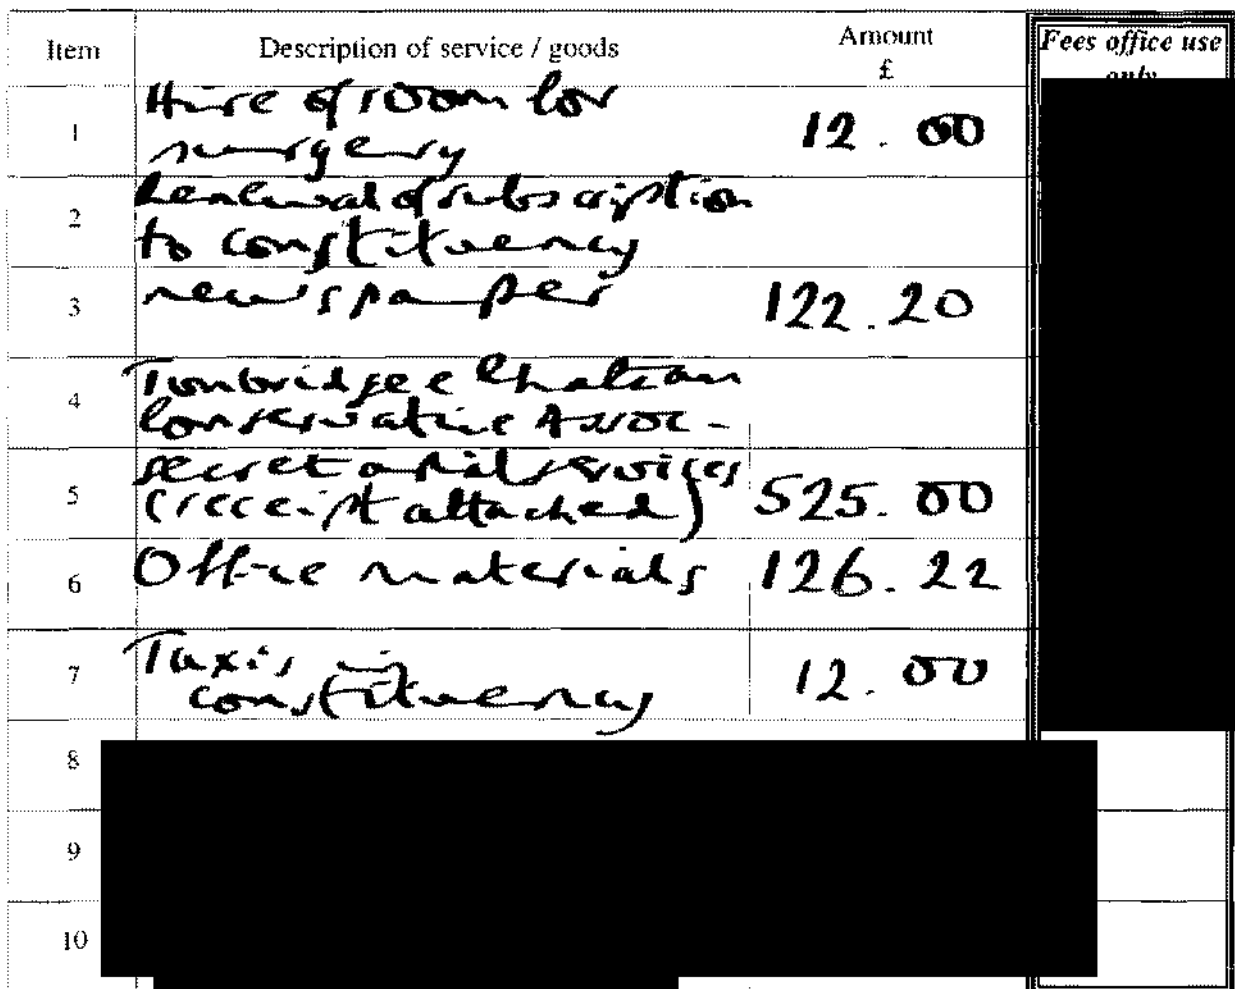 Item Description of service / goods Amount £ Fees office use only
1 Hire of room for surgery 12.00
2 Renewal of subscription to constituency
3 newspaper 122.20
4 Tonbridge & Chatham Conservative Assoc -
5 secretarial services (receipt attached) 525.00
6 Office materials 126.22
7 Taxis in constituency 12.00
8
9
10